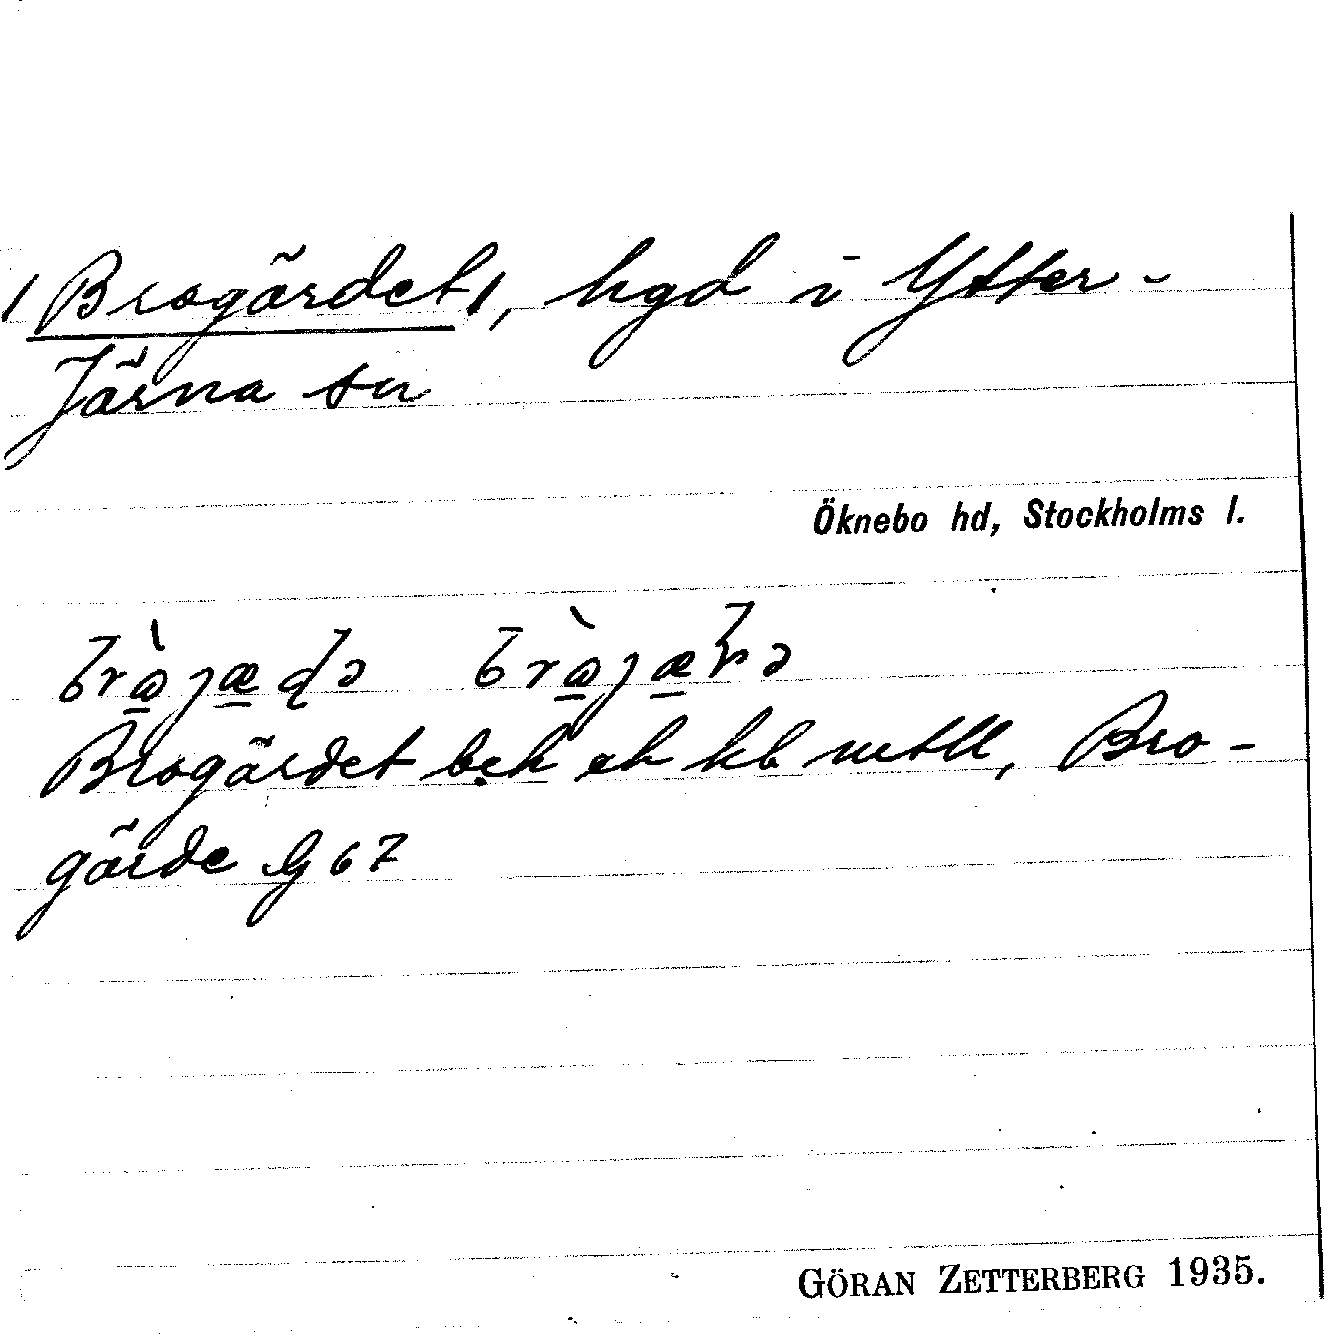 /Brogärdet/, hgd i Ytter-
Järna sn
Öknebo hd, Stockholms l.
Brogärdet bek eb kb mtll, Bro-
gärde G 67
GÖRAN ZETTERBERG 1935.